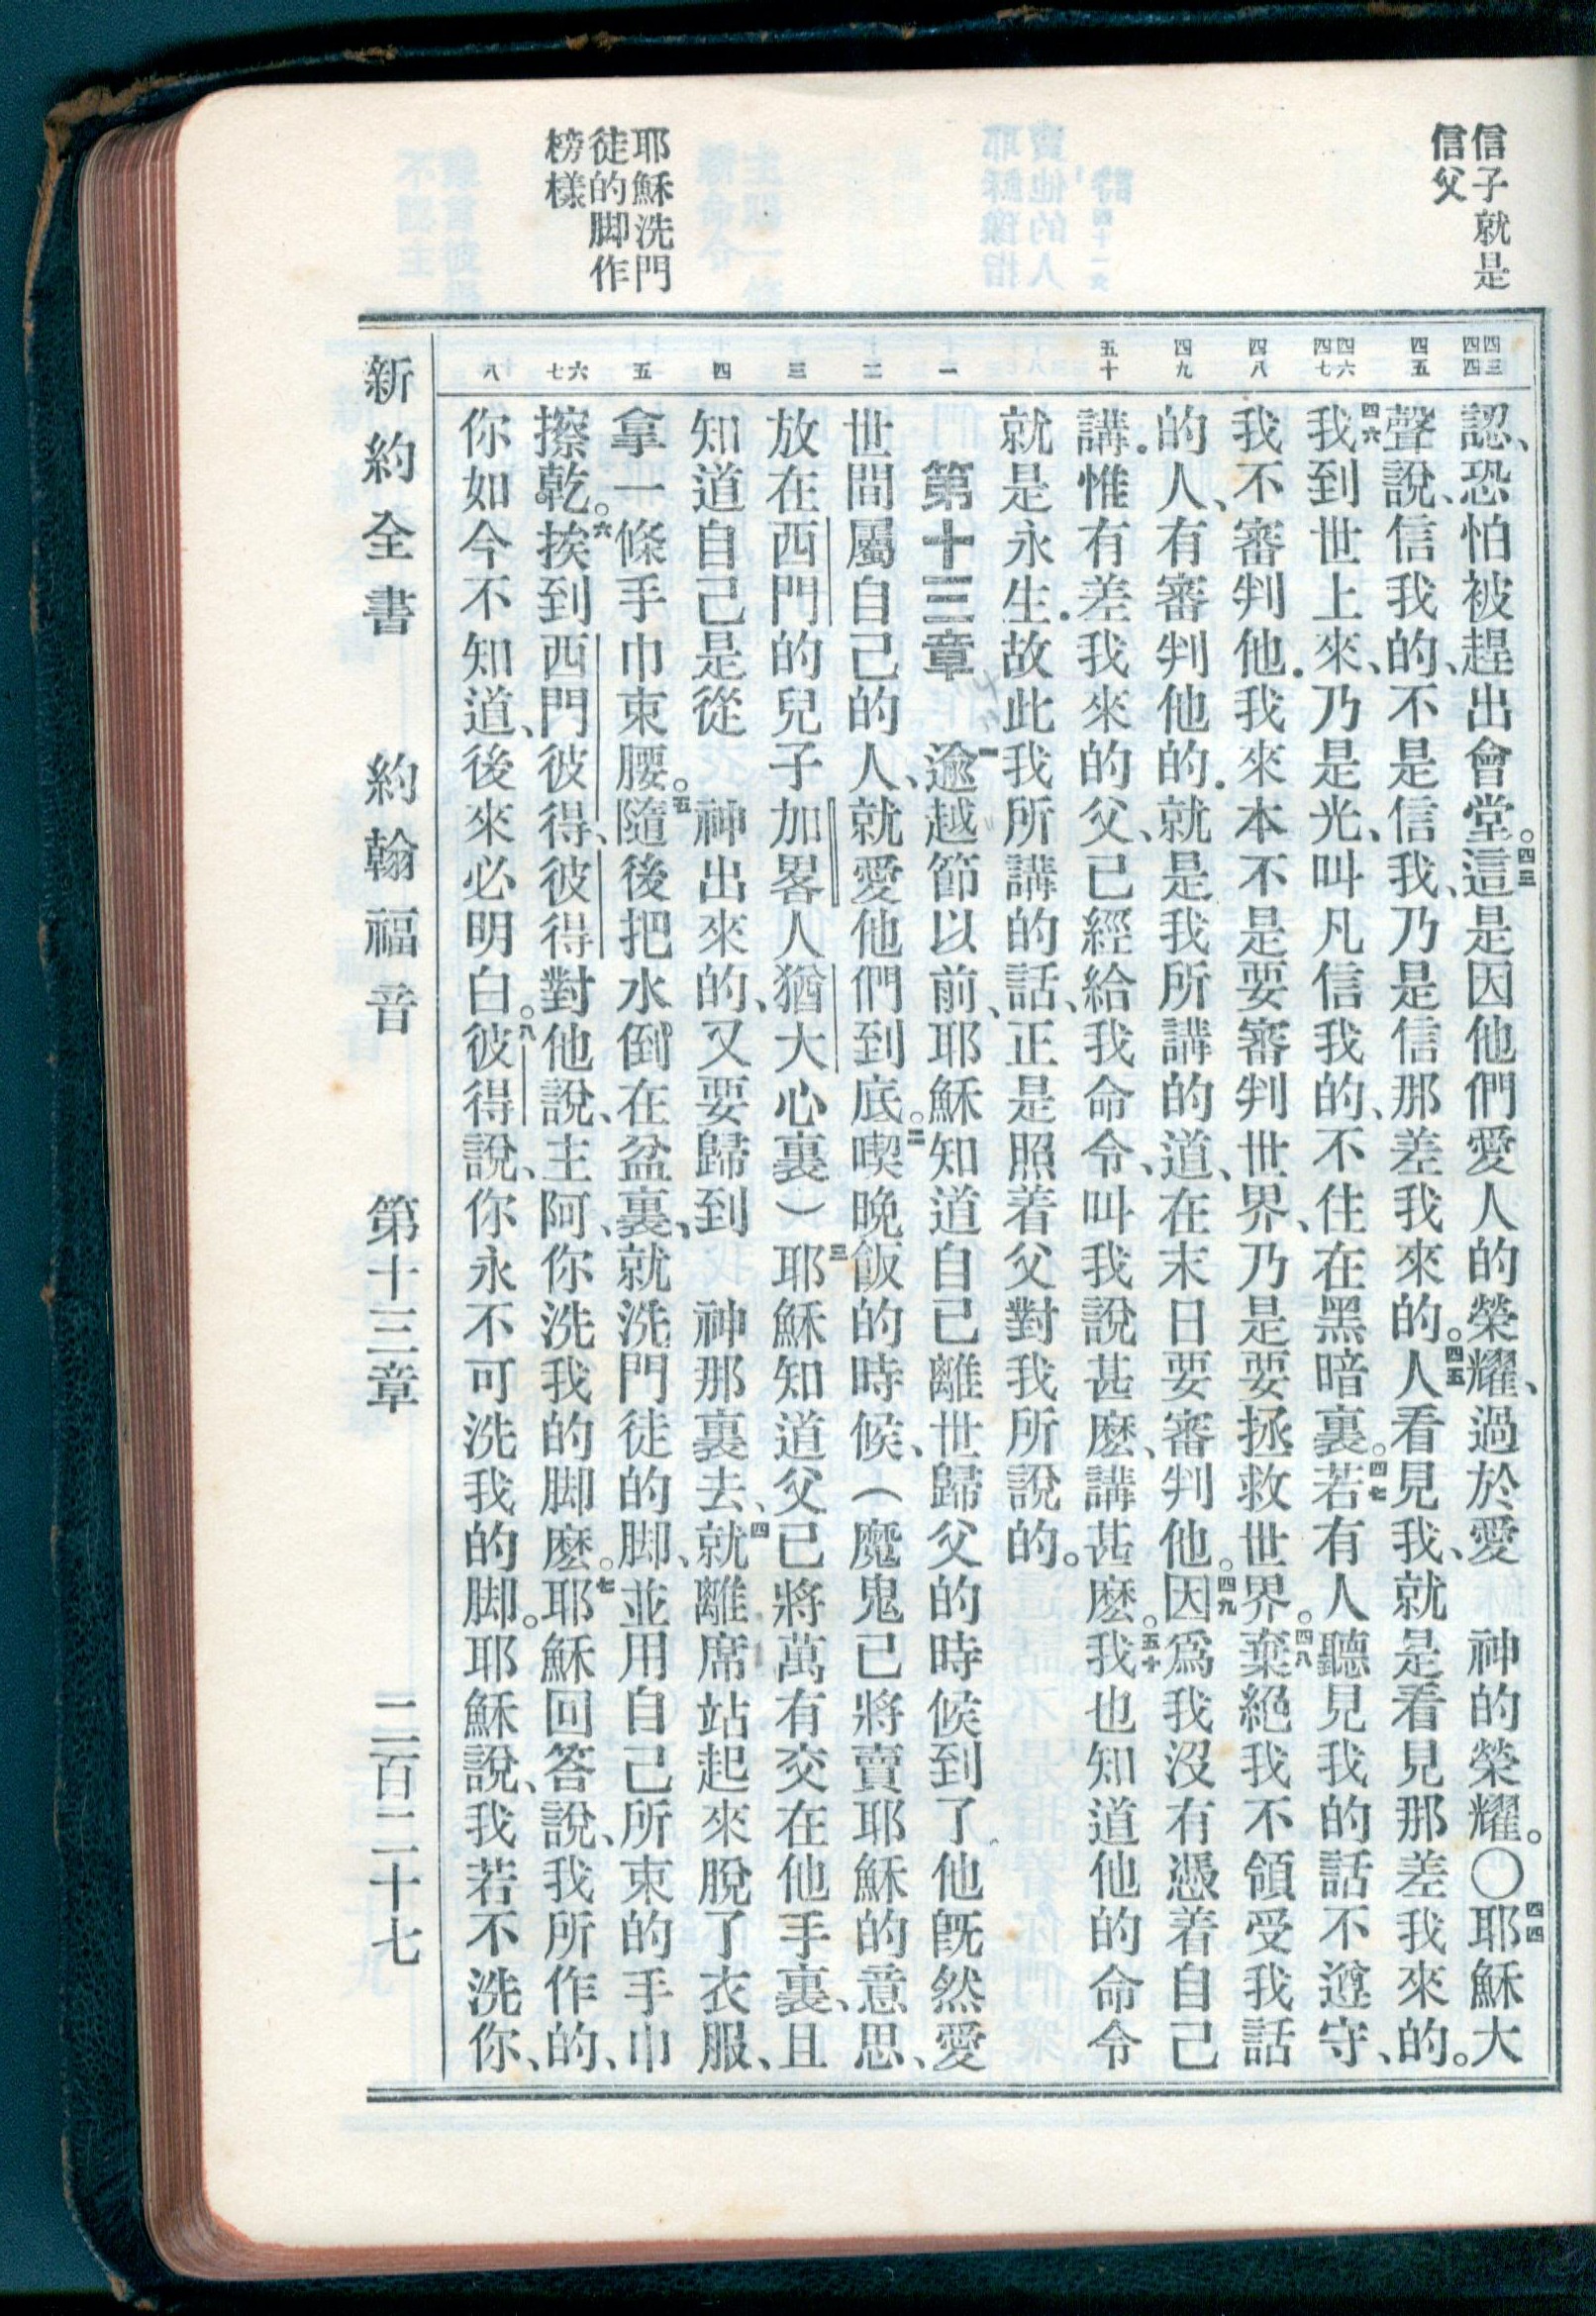 信子就是
信父
耶穌洗門
徒的脚作
榜樣
四三
四四
四五
四六
四七
四八
四九
五十
一
二
三
四
五
六
七
八
認、恐怕被趕出會堂。四三這是因他們愛人的榮耀、過於愛　神的榮耀。〇四四耶穌大
聲說、信我的、不是信我、乃是信那差我來的。四五人看見我、就是看見那差我來的。
四六我到世上來、乃是光、叫凡信我的、不住在黑暗裏。四七若有人聽見我的話不遵守、
我不審判他．我來本不是要審判世界、乃是要拯救世界。四八棄絕我不領受我話
的人、有審判他的．就是我所講的道、在末日要審判他。四九因爲我沒有憑着自己
講．惟有差我來的父、已經給我命令、叫我說甚麽、講甚麽。五十我也知道他的命令
就是永生．故此我所講的話、正是照着父對我所說的。
第十三章　一逾越節以前、耶穌知道自己離世歸父的時候到了他旣然愛
世間屬自己的人、就愛他們到底。二喫晚飯的時候、（魔鬼已將賣耶穌的意思、
放在西門的兒子加畧人猶大心裏）三耶穌知道父已將萬有交在他手裏、且
知道自己是從　神出來的、又要歸到　神那裏去、四就離席站起來脫了衣服、
拿一條手巾束腰。五隨後把水倒在盆裏、就洗門徒的脚、並用自己所束的手巾
擦乾。六挨到西門彼得、彼得對他說、主阿、你洗我的脚麽。七耶穌回答說、我所作的、
你如今不知道、後來必明白。八彼得說、你永不可洗我的脚。耶穌說、我若不洗你、
新約全書　約翰福音　第十三章　一百二十七